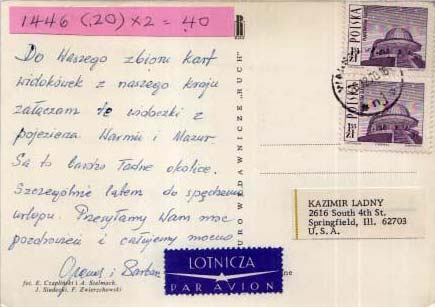 1446 (.20) x2 = .40
Do Waszego zbioru kart
widokówek z naszego kraju
załączam te widoczki z
pojezierza Warmii i Mazur.
Są to bardzo ładne okolice.
Szczególnie latem do spędzenia
urlopu. Przesyłamy Wam moc
pozdrowień i całujemy mocno
i Barbara
fot. E. Czapliński i A. Stelmach,
J. Siudecki, F. Zwierzchowski
BIURO WYDAWNICZE „RUCH”
POLSKA
POLSKA
KAZIMIR LADNY
2616 South 4th St.
Springfield, Ill. 62703
U.S.A.
LOTNICZA
PAR AVION